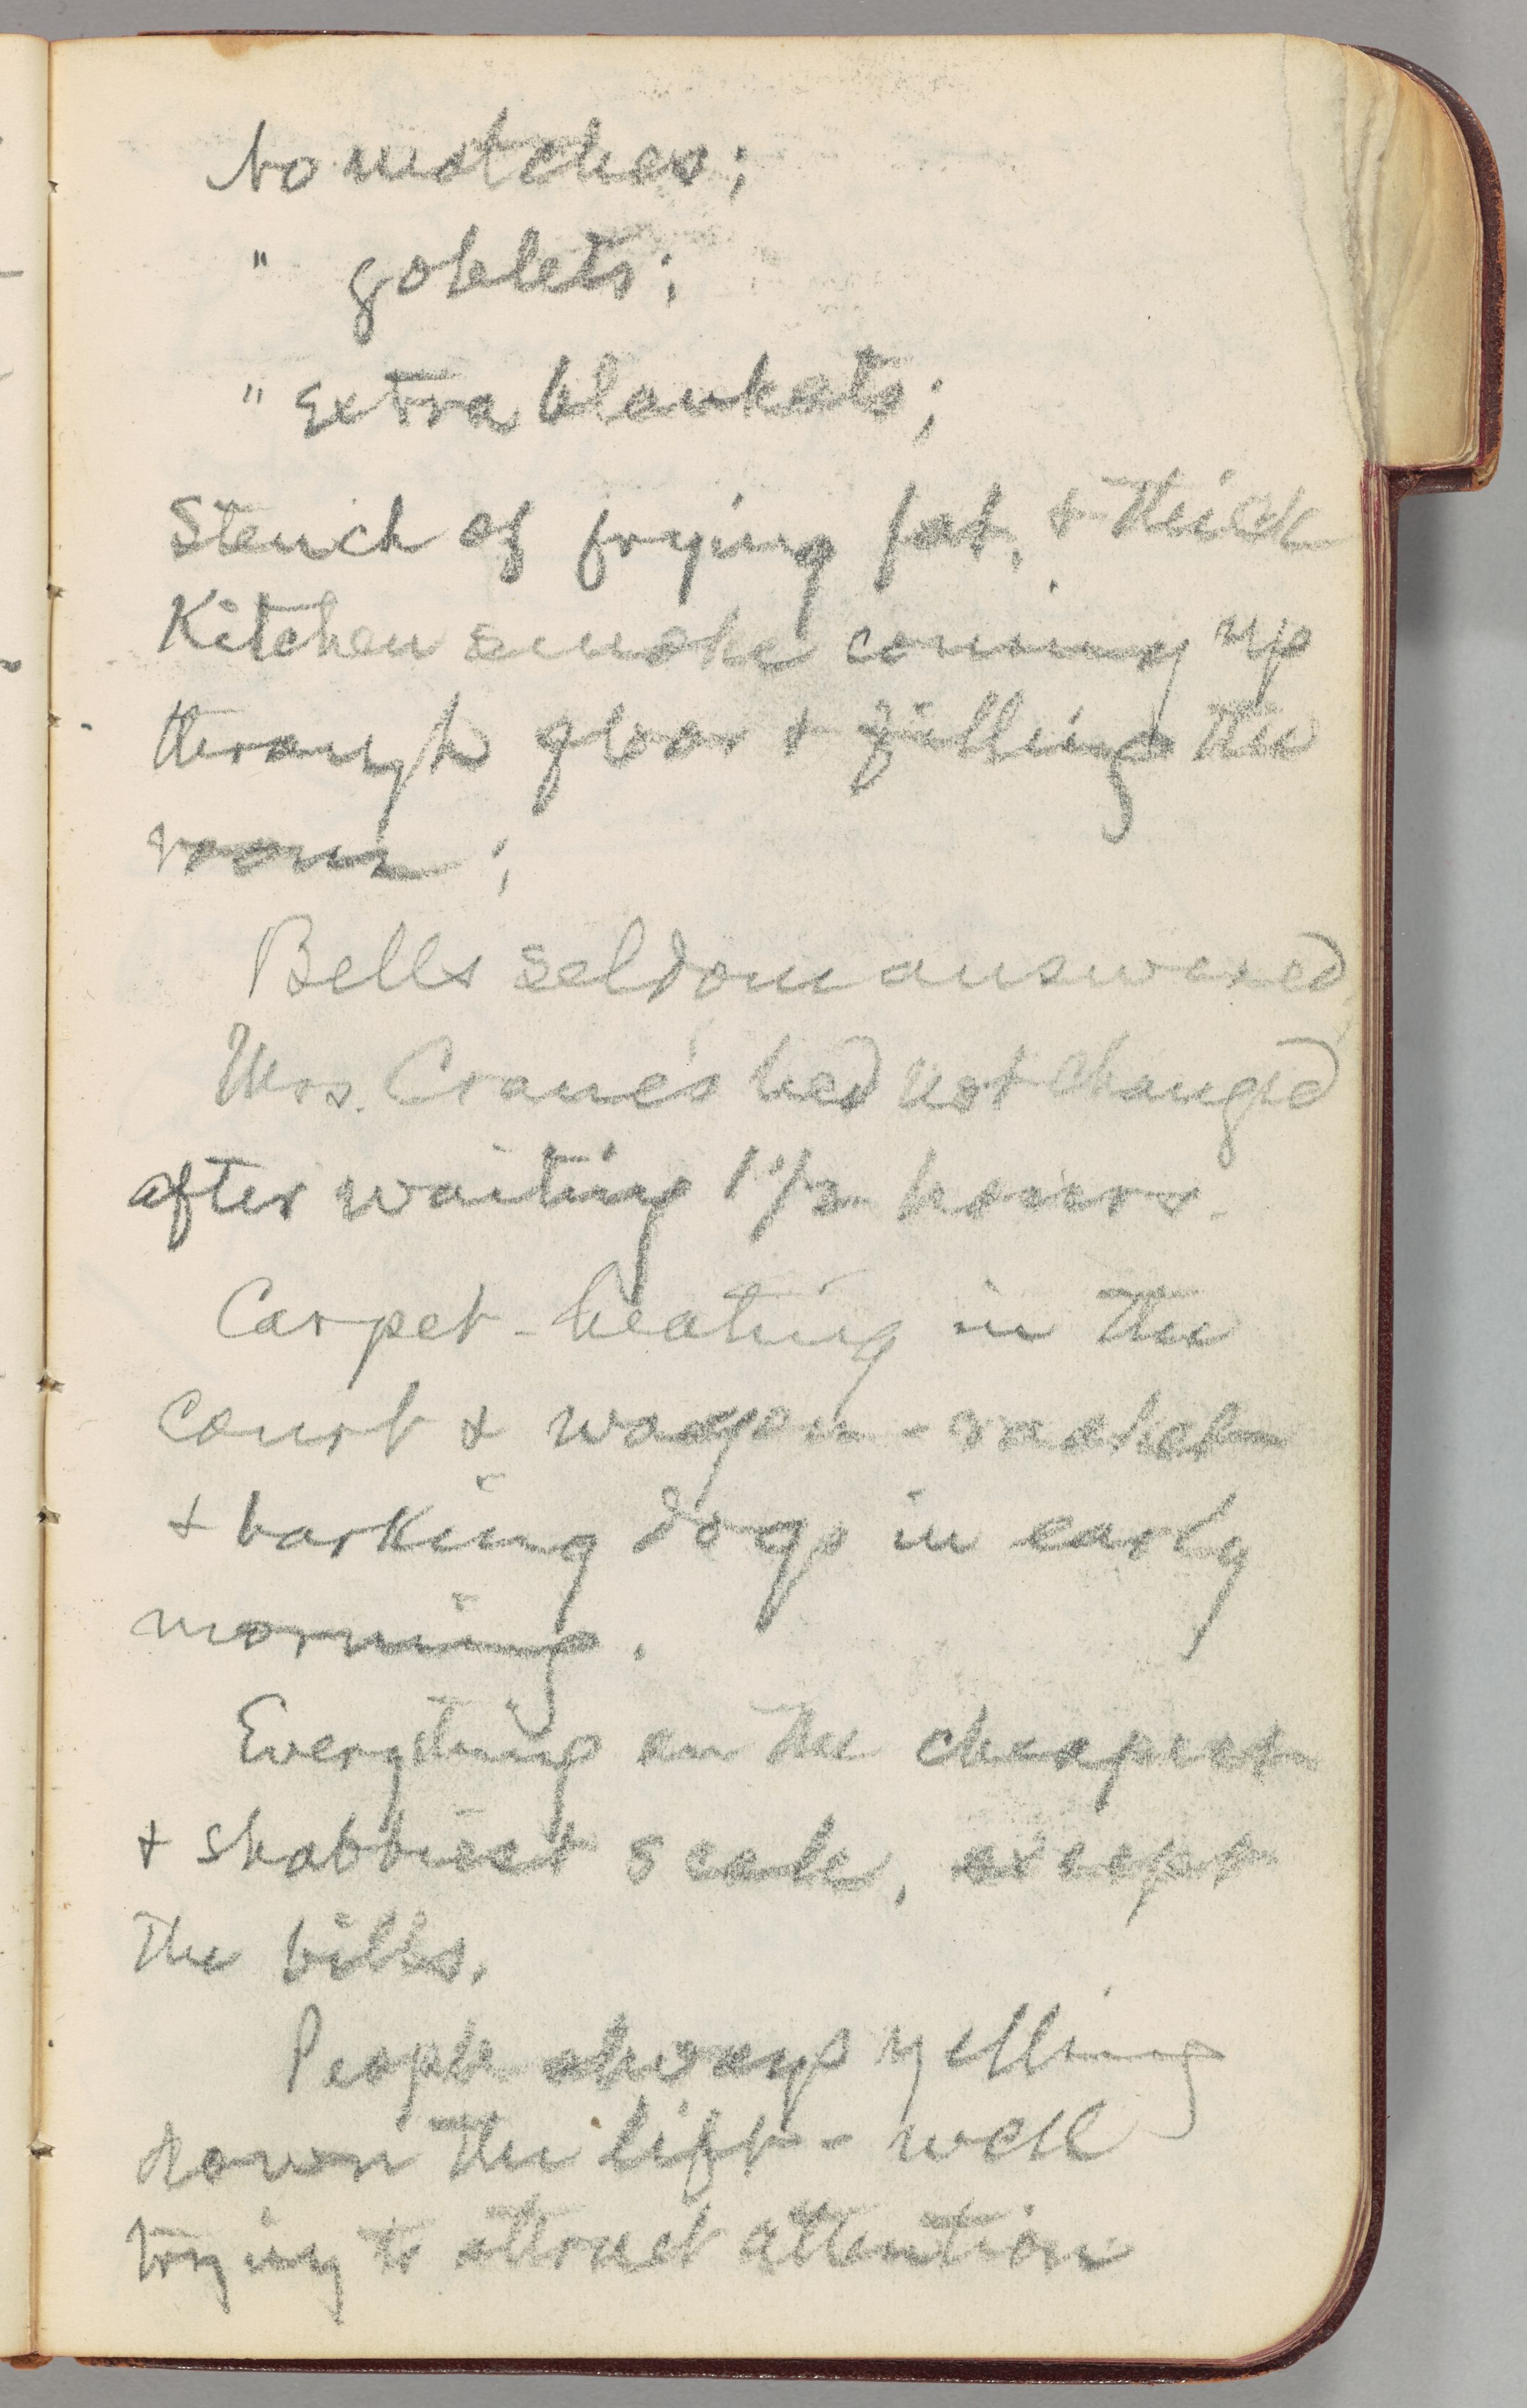 No matches;
" goblets;
" extra blankets;
Stench of frying fat, & thick
Kitchen smoke coming up
through floor & filling the
room;
Bells seldom answered.
Mrs. Crane's bed not changed
after waiting 1 1/2 hours.
Carpet-beating in the
court & wagon-racket
& barking dogs in early
morning.
Everything on the cheapest
& shabbiest scale, except
the bills.
People always yelling
down the lift-well
trying to attract attention